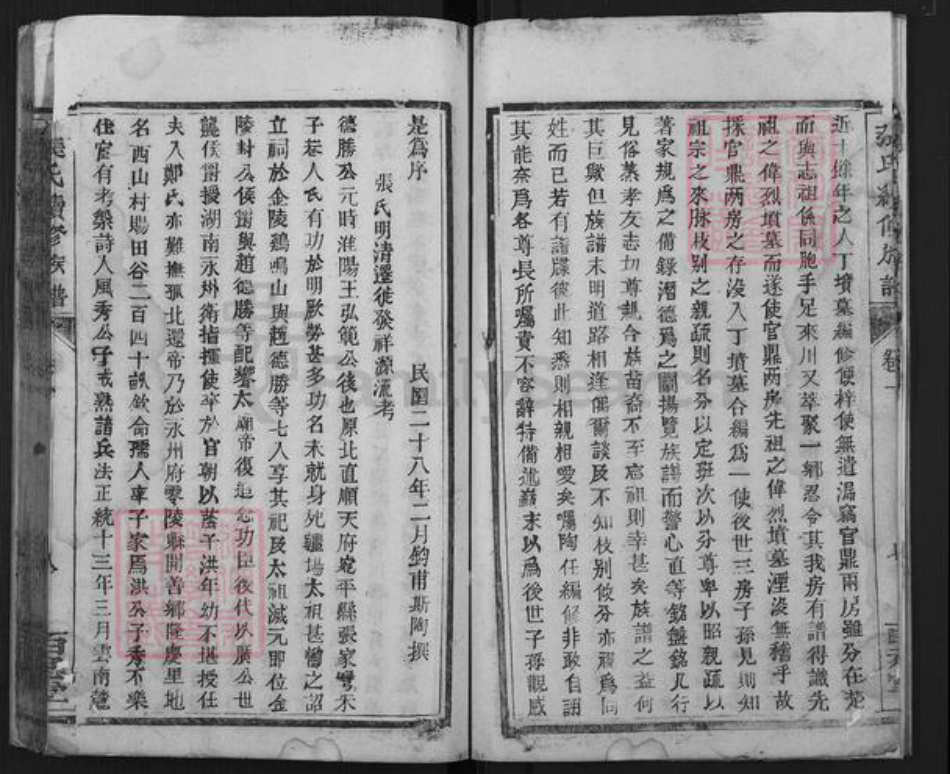 張氏續修族譜 卷一
近十餘年之人丁墳墓編修便梓使無遺漏竊官鼎兩房雖分在楚
而與志祖係同胞手足來川又萃聚一鄉忍令其我房有譜得識先
祖之偉烈墳墓而遂使官鼎兩房先祖之偉烈墳墓湮沒無稽乎故
採官鼎两房之存没入丁墳墓合編為一使後世三房子孫見則知
祖宗之來脉枝别之親疏則名分以定班次以分尊卑以昭親疏以
著家規爲之備錄潛德爲之闡揚覽族譜而警心直等銘盤銘几行
見俗蒸孝友志切尊親合族苗裔不至忘祖則幸甚矣族譜之益何
其巨歟但族譜未明道路相逢偶爾談及不知枝别倏分亦視爲同
姓而已若有譜牒彼此知悉則相親相愛矣囑陶任編修非敢自諉
其能奈爲各尊長所囑責不容辭特備述巔末以爲後世子孫觀感
是爲序
民國二十八年二月鈞甫斯陶撰
張氏明清遷徙發祥源流考
德勝公元時淮陽王弘範公後也原北直順天府宛平縣張家灣朱
子巷人氏有功於明厥勞甚多功名未就身死疆場太祖甚曾之詔
立祠於金陵鷄鳴山與趙德勝等七人享其祀及太祖滅元即位金
陵封公侯爵與趙德勝等配饗太廟帝復追念功臣後代以廣公世
襲侯爵授湖南永州衛指揮使卒於官朝以蔭子洪年幼不堪授任
夫人鄭氏亦難撫孤北還帝乃於永州府零陵縣開善鄉隆慶里地
名西山村賜田谷二百四十畝欽命孺人率子家焉洪公子秀不樂
仕宦有考槃詩人風秀公子戒熟諳兵法正統十三年三月雲南麓
張氏續修族譜